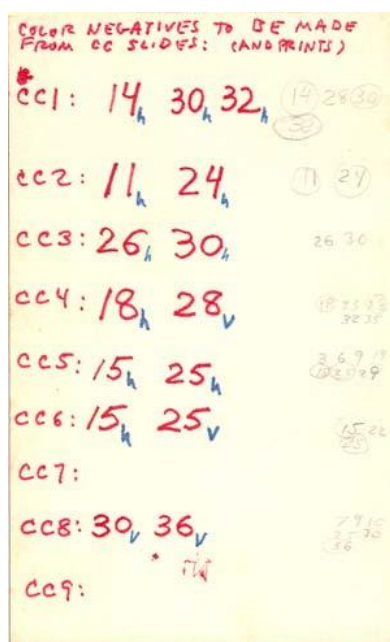 COLOR NEGATIVES TO BE MADE
FROM CC SLIDES: (AND PRINTS)
CC1: 14h 30h 32h 14 28 30
32
CC2: 11h 24h 11 24
CC3: 26h 30h 26 30
CC4: 18h 28v 18
32 35
CC5: 15h 25h 3 6 9
15 25 29
CC6: 15h 25v 15 22
25
CC7:
CC8: 30v 36v 7 9 10
30
36
CC9: